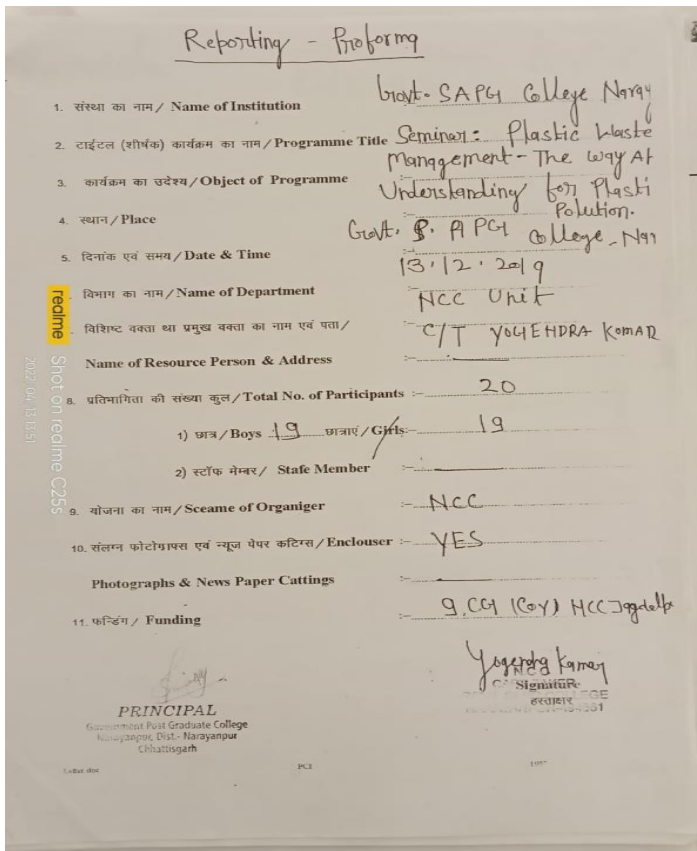 Reporting - Proforma
1. संस्था का नाम / Name of Institution Govt. SAPG College Naray
2. टाईटल (शीर्षक) कार्यक्रम का नाम / Programme Title Seminar: Plastic Waste
Management - The way At
3. कार्यक्रम का उदेश्य / Object of Programme Understanding for Plasti
Polution.
4. स्थान / Place Govt. S. A PG College, Nar
5. दिनांक एवं समय / Date & Time 13.12.2019
. विभाग का नाम / Name of Department NCC Unit
. विशिष्ट वक्ता था प्रमुख वक्ता का नाम एवं पता / C/T YOGENDRA KOMAR
Name of Resource Person & Address :-
8. प्रतिभागिता की संख्या कुल / Total No. of Participants :- 20
1) छात्र / Boys 19 छात्राएं / Girls:- 19
2) स्टॉफ मेम्बर / Stafe Member :-
9. योजना का नाम / Sceame of Organiger :- NCC
10. संलग्न फोटोग्राफ्स एवं न्यूज पेपर कटिंग्स / Enclouser :- YES
Photographs & News Paper Cattings :-
11. फन्डिंग / Funding :- 9.CG (COY) NCC Jagdalp
Yogendra Kamar
NCC
Signature
हस्ताक्षर
PRINCIPAL
Government Post Graduate College
Narayanpur, Dist.- Narayanpur
Chhattisgarh
Letter doc PCI
realme Shot on realme C25s
2022.04.13 13:51